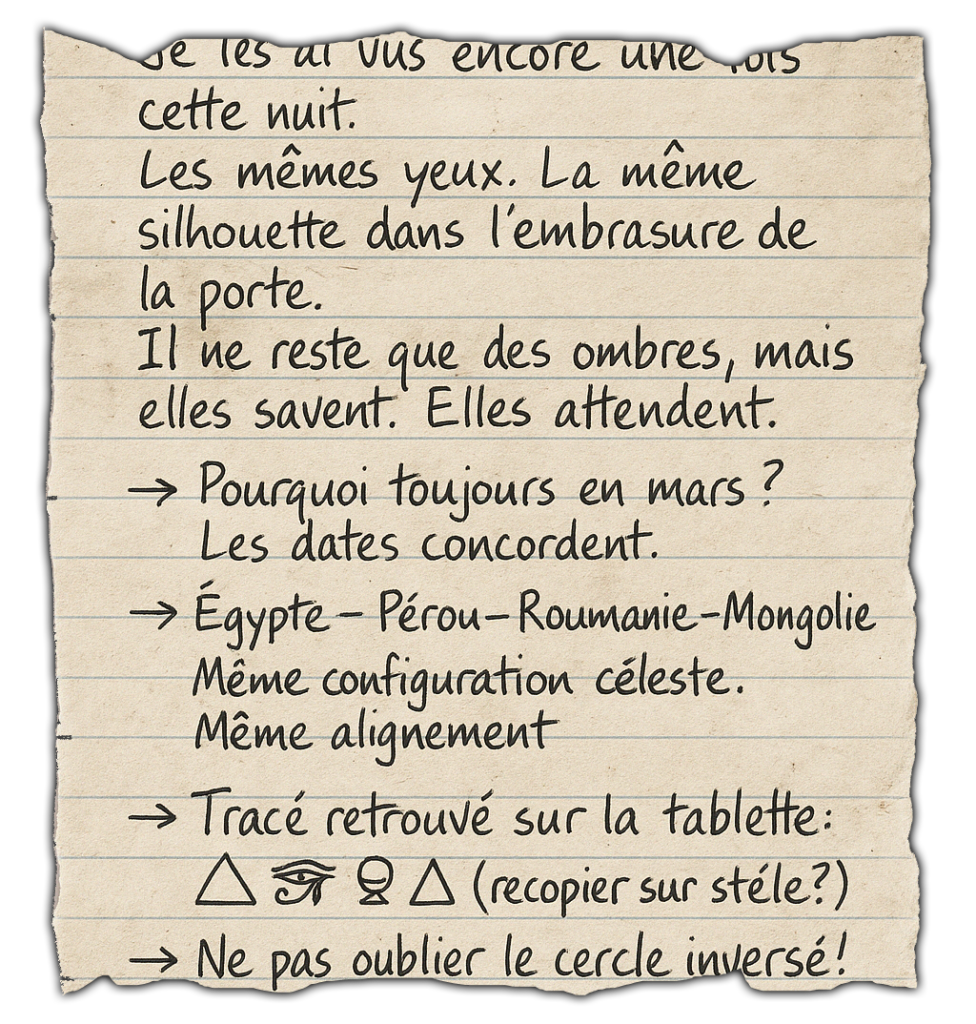 Je les ai vus encore une fois
cette nuit.
Les mêmes yeux. La même
silhouette dans l'embrasure de
la porte.
Il ne reste que des ombres, mais
elles savent. Elles attendent.
→ Pourquoi toujours en mars ?
Les dates concordent.
→ Égypte – Pérou – Roumanie – Mongolie
Même configuration céleste.
Même alignement
→ Tracé retrouvé sur la tablette:
(recopier sur stéle?)
→ Ne pas oublier le cercle inversé!